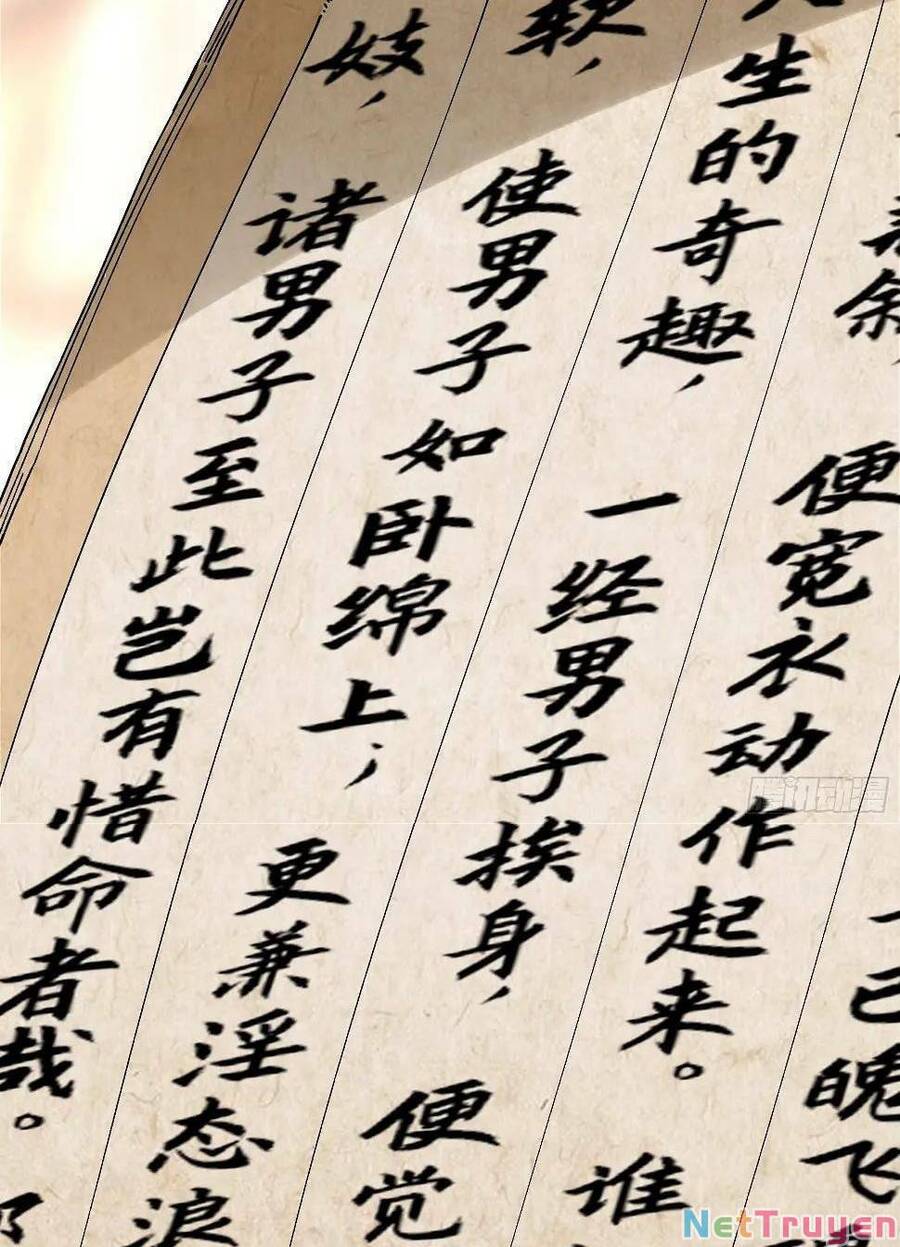 己魄飞
叙，便宽衣动作起来。谁
生的奇趣，一经男子挨身，便觉
软，使男子如卧绵上；更兼淫态浪
妓，诸男子至此岂有惜命者哉。
腾讯动漫
NetTruyen